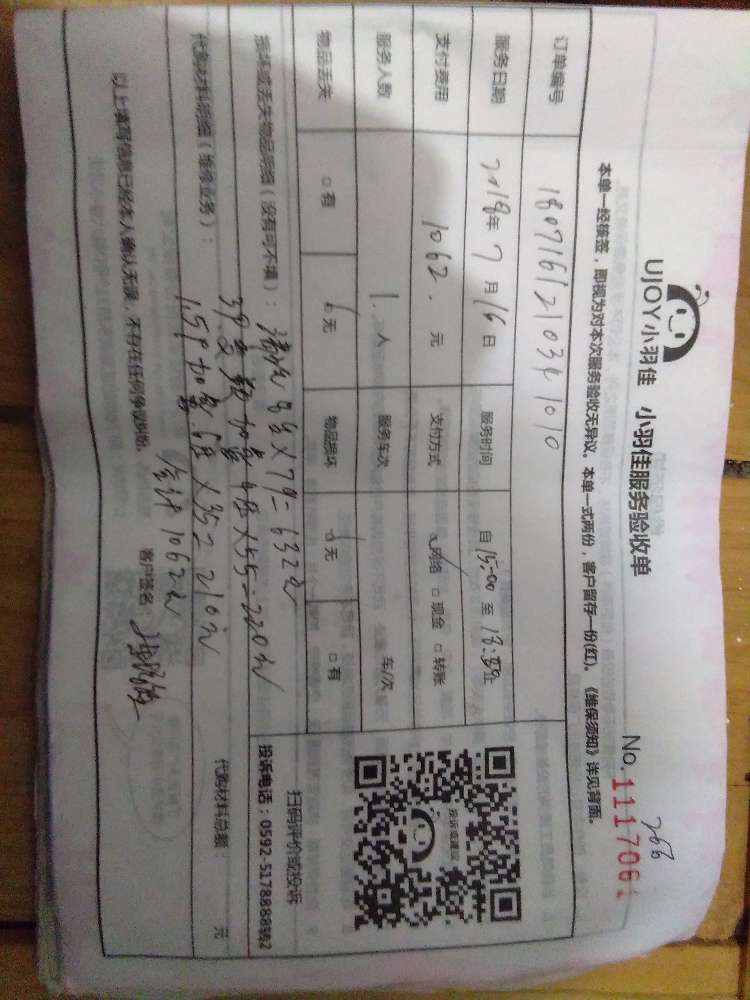 UJOY小羽佳 小羽佳服务验收单
No. 1117061
266
本单一经核签，即视为对本次服务验收无异议。本单一式两份，客户留存一份(红)。《维保须知》详见背面。
订单编号 1807161210341010
服务日期 2018年7月16日 服务时间 自15:00至18:50止
支付费用 1062.元 支付方式 ☑网络 □现金 □转账
服务人数 1.人 服务车次 车/次
物品丢失 □有 ☑无 物品损坏 ☑无 □有
损坏或丢失物品明细（没有可不填）：
清洗8台×79=632元
3P变频加氟4压×55=220元
代购材料明细（维修业务）：
1.5P加氟6压×35=210元
代购材料总额： 元
合计1062元
以上填写信息已经本人确认无误，不存在任何争议纠纷。
客户签名：
投诉或建议
扫码评价或投诉
投诉电话：0592-5178888转2